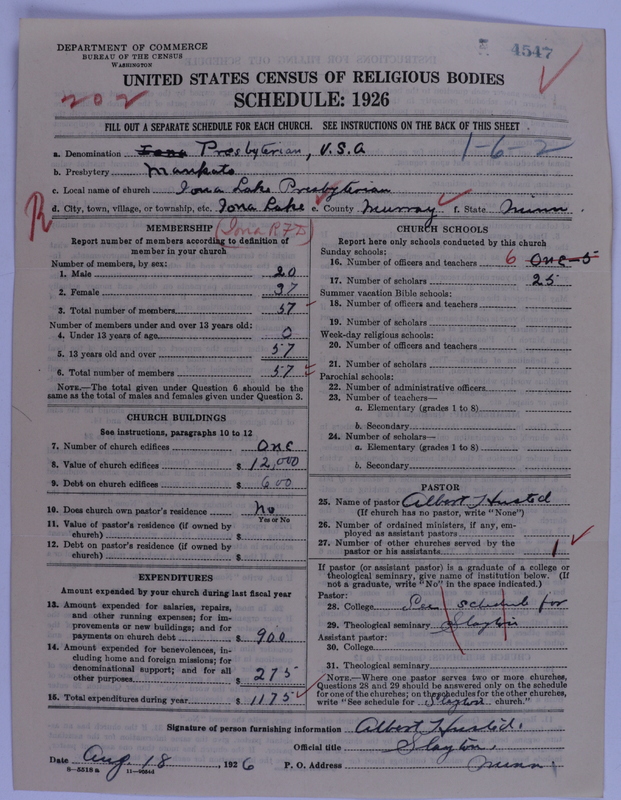 DEPARTMENT OF COMMERCE
BUREAU OF THE CENSUS
WASHINGTON
4547
UNITED STATES CENSUS OF RELIGIOUS BODIES
202
SCHEDULE: 1926
FILL OUT A SEPARATE SCHEDULE FOR EACH CHURCH. SEE INSTRUCTIONS ON THE BACK OF THIS SHEET
1-6-2
a. Denomination Iona Presbyterian, U.S.A
b. Presbytery Mankato
c. Local name of church Iona Lake Presbyterian
d. City, town, village, or township, etc. Iona Lake e. County Murray f. State Minn.
R
(Iona RFD)
MEMBERSHIP
Report number of members according to definition of
member in your church
Number of members, by sex:
1. Male 20
2. Female 37
3. Total number of members 57
Number of members under and over 13 years old:
4. Under 13 years of age 0
5. 13 years old and over 57
6. Total number of members 57
NOTE.—The total given under Question 6 should be the
same as the total of males and females given under Question 3.
CHURCH BUILDINGS
See instructions, paragraphs 10 to 12
7. Number of church edifices One
8. Value of church edifices $ 12,000
9. Debt on church edifices $ 600
10. Does church own pastor's residence No
Yes or No
11. Value of pastor's residence (if owned by
church) $
12. Debt on pastor's residence (if owned by
church) $
EXPENDITURES
Amount expended by your church during last fiscal year
13. Amount expended for salaries, repairs,
and other running expenses; for im-
provements or new buildings; and for
payments on church debt $ 900
14. Amount expended for benevolences, in-
cluding home and foreign missions; for
denominational support; and for all
other purposes $ 275
15. Total expenditures during year $ 1175
CHURCH SCHOOLS
Report here only schools conducted by this church
Sunday schools:
16. Number of officers and teachers 6 One-5
17. Number of scholars 25
Summer vacation Bible schools:
18. Number of officers and teachers
19. Number of scholars
Week-day religious schools:
20. Number of officers and teachers
21. Number of scholars
Parochial schools:
22. Number of administrative officers
23. Number of teachers—
a. Elementary (grades 1 to 8)
b. Secondary
24. Number of scholars—
a. Elementary (grades 1 to 8)
b. Secondary
PASTOR
25. Name of pastor Albert J Husted
(If church has no pastor, write "None")
26. Number of ordained ministers, if any, em-
ployed as assistant pastors
27. Number of other churches served by the
pastor or his assistants 1
If pastor (or assistant pastor) is a graduate of a college or
theological seminary, give name of institution below. (If
not a graduate, write "No" in the space indicated.)
Pastor:
28. College See schedule for
29. Theological seminary Slayton
Assistant pastor:
30. College
31. Theological seminary
NOTE.—Where one pastor serves two or more churches,
Questions 28 and 29 should be answered only on the schedule
for one of the churches; on the schedules for the other churches,
write "See schedule for Slayton church."
Signature of person furnishing information Albert J Husted.
Official title Slayton,
Date Aug. 18, 1926 P. O. Address Minn.
8—5518 a 11—90544